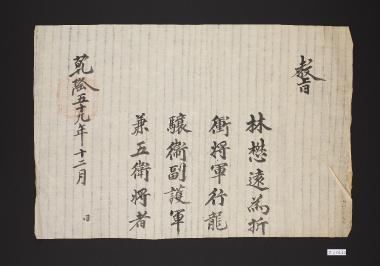 教旨
林懋遠為折
衝將軍行龍
驤衛副護軍
兼五衛將者
乾隆五十九年十二月 日